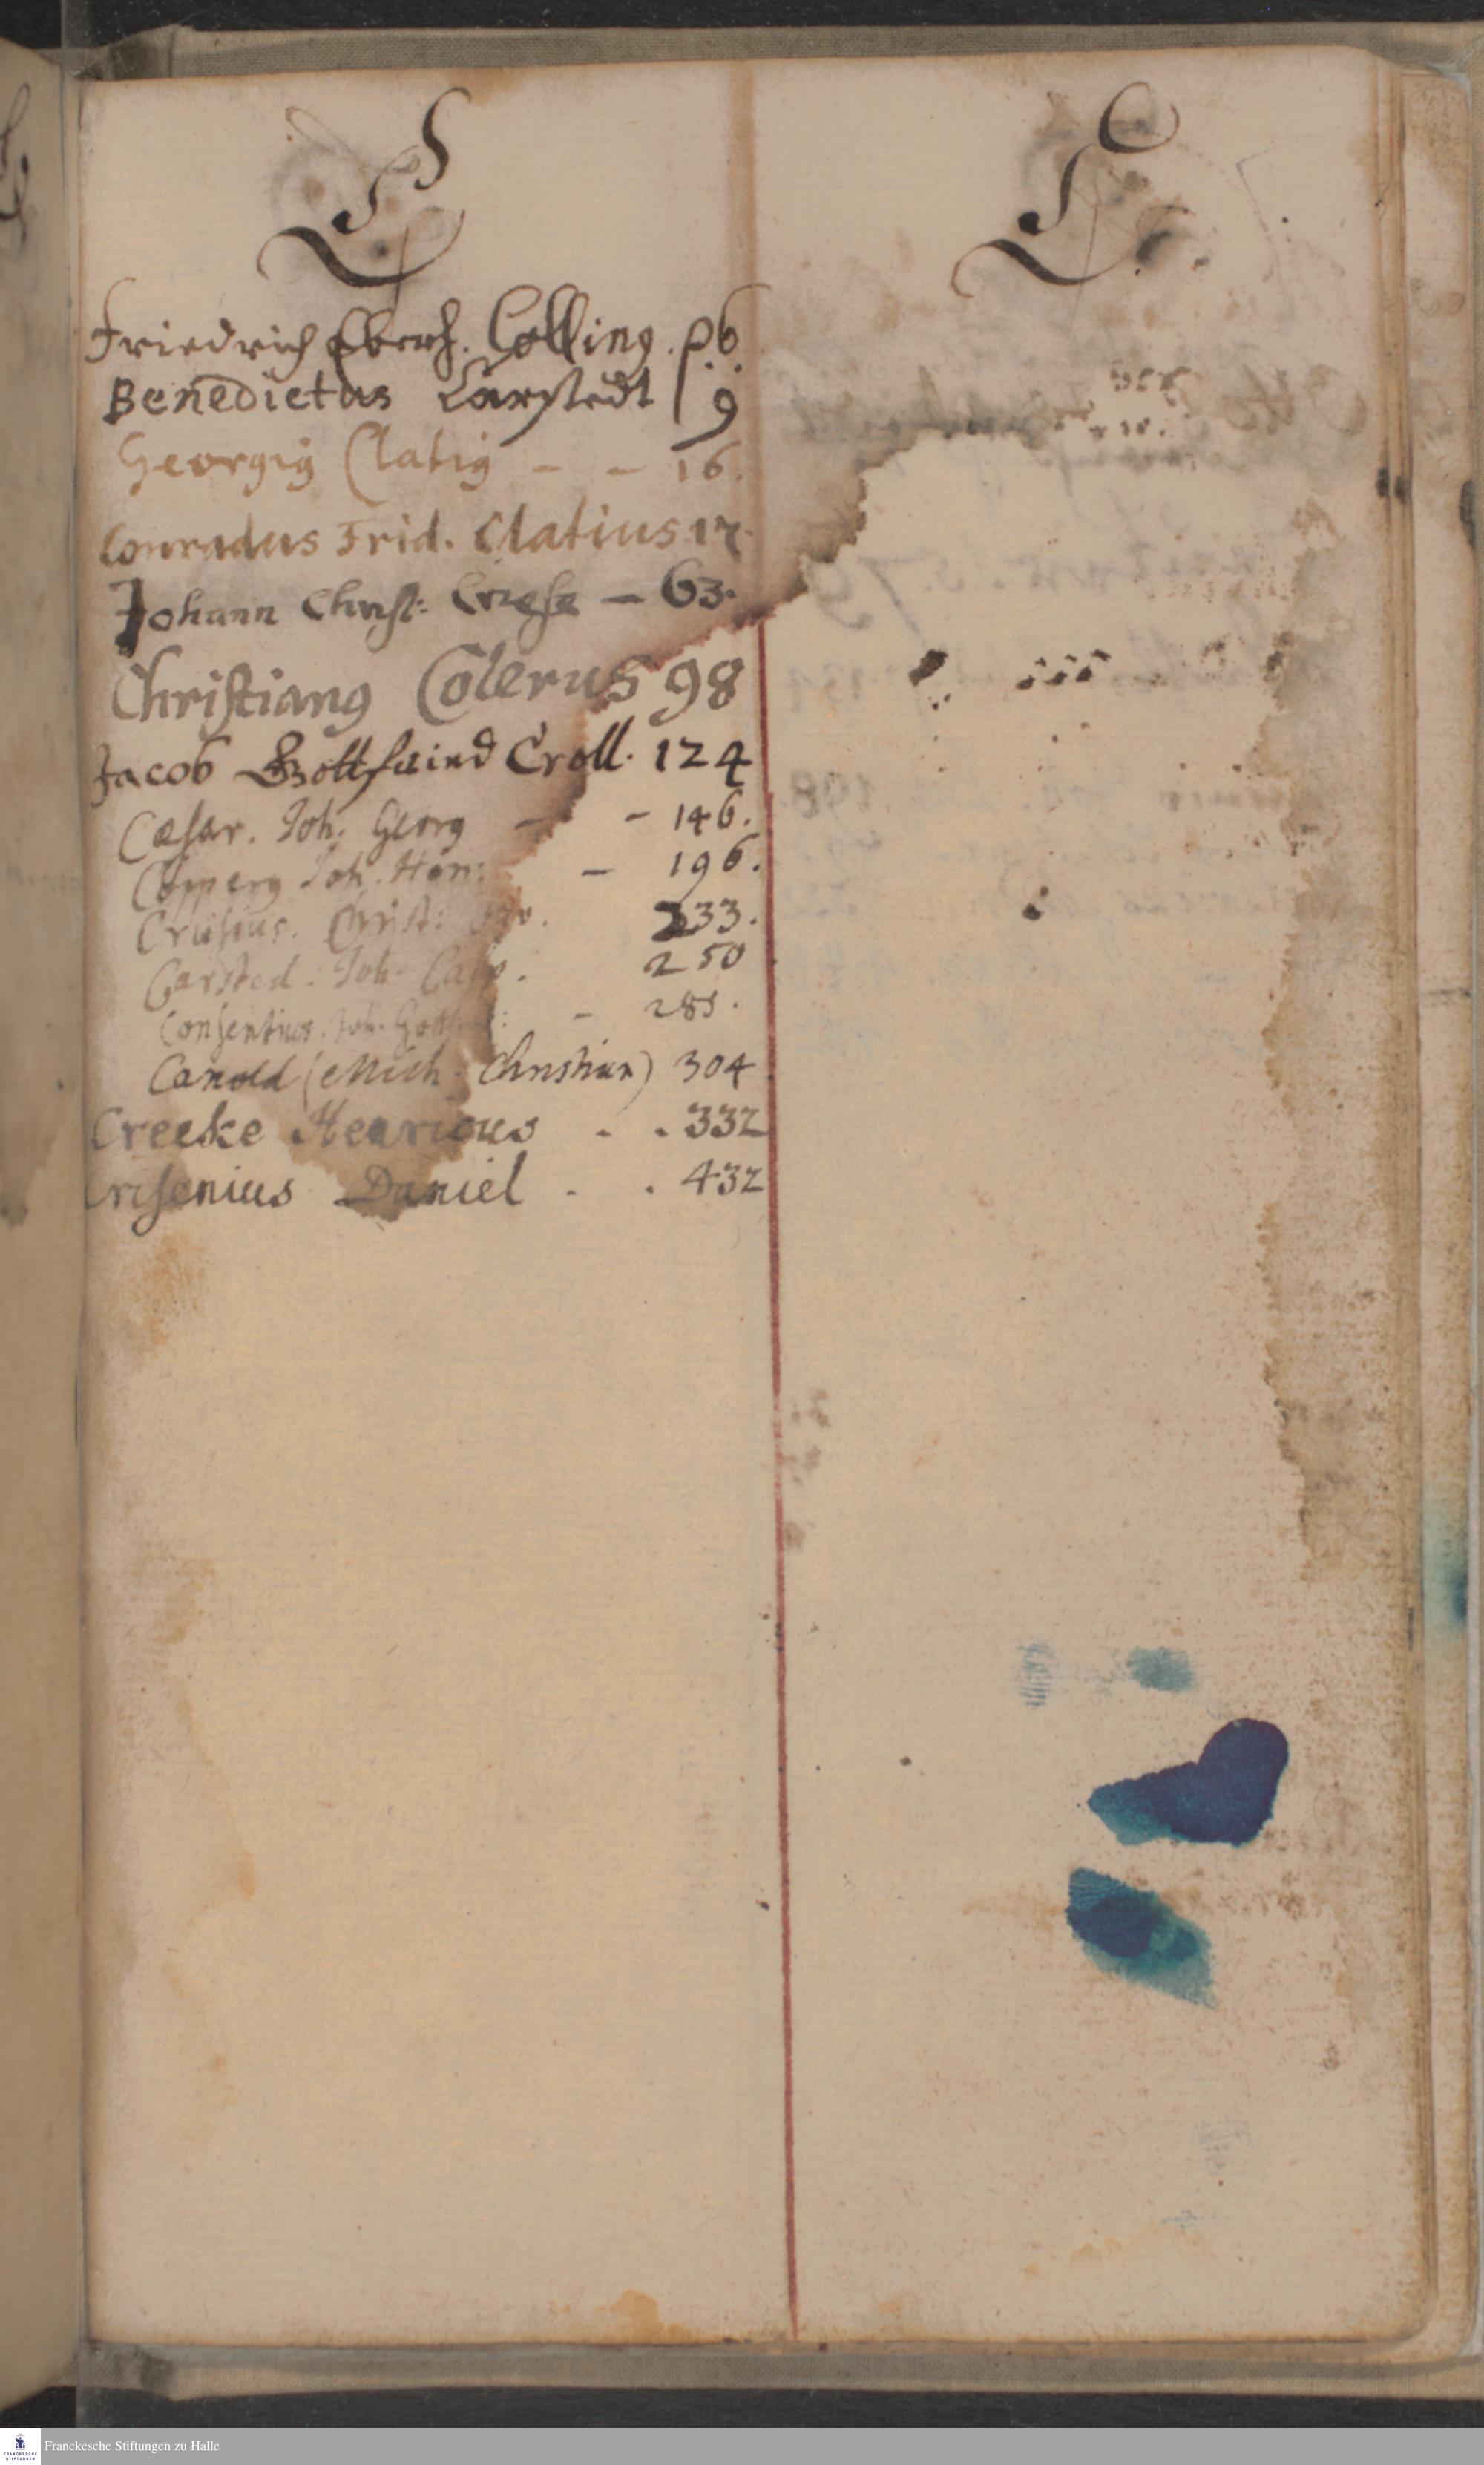 C
C
Friedrich Eberh. Colling. p. 6.
Benedictus Carstedt 9
Georgig Clatig - - 16.
Conradus Frid. Clatius 17.
Johann Christ: Criese — 63.
Christiang Colerus 98
Jacob Gottfried Croll. 124
Cæsar. Joh. Georg — - 146.
Joh. — 196.
Crusius. Christ: 233.
Carsted. Joh. 250
Consentius. Joh. - 285.
Canold (Mich. Christian) 304
Creeke Henricus . . 332
Crisenius Daniel . . 432
Franckesche Stiftungen zu Halle